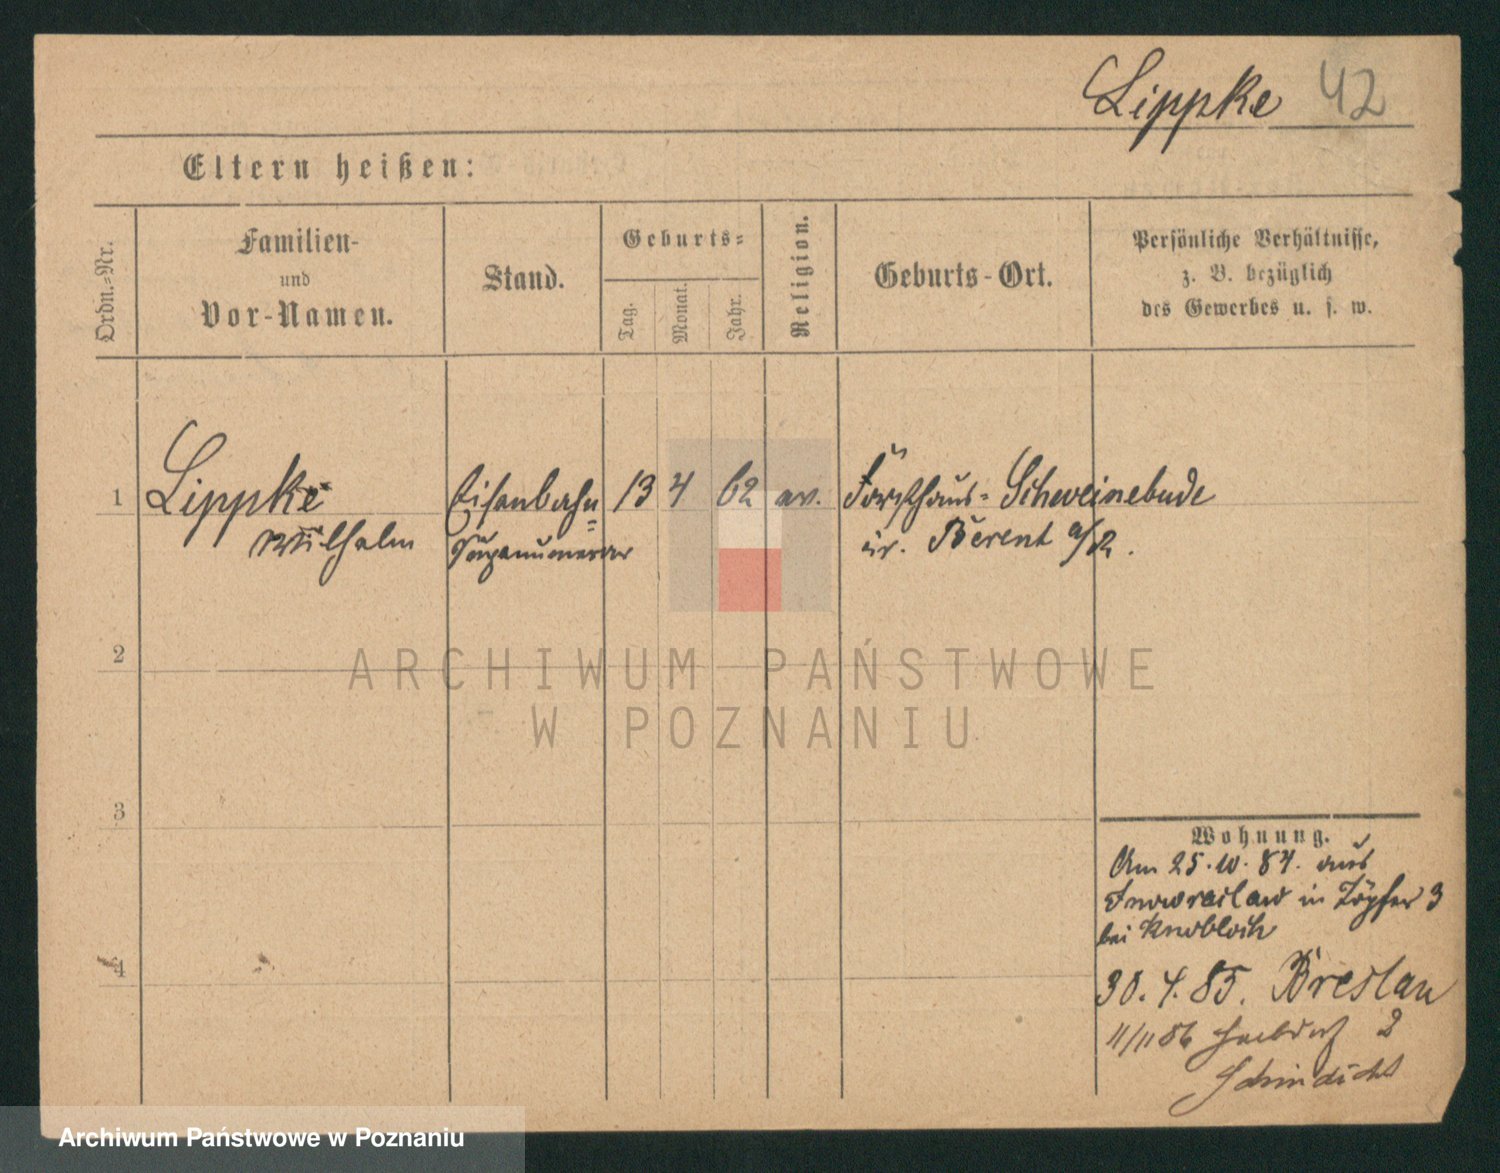 Lippke 42
Eltern heißen:
Ordn.-Nr.
Familien-
und
Vor-Namen.
Stand.
Geburts-
Tag.
Monat.
Jahr.
Religion.
Geburts-Ort.
Persönliche Verhältnisse,
z. B. bezüglich
des Gewerbes u. s. w.
1 Lippke Eisenbahn= 13 4 62 ev. Forsthaus- Schweinebude
Wilhelm Supernumerar Kr. Berent
2
ARCHIWUM PAŃSTWOWE
W POZNANIU
3
Wohnung.
Am 25.10.84. aus
Inowrazlaw in Töpfer 3
bei Knobloch
4
30.4.85. Breslau
11/11 86 2
Archiwum Państwowe w Poznaniu